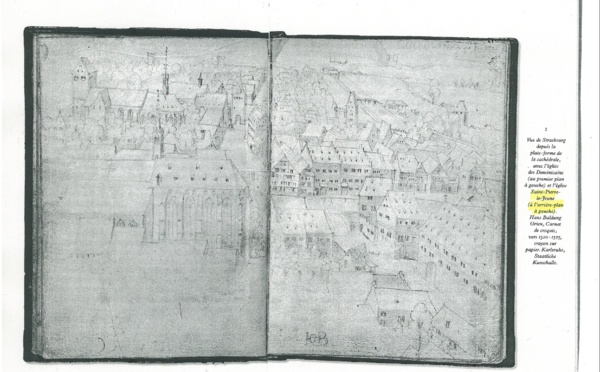 1
Vue de Strasbourg
depuis la
plate-forme de
la cathédrale,
avec l'église
des Dominicains
(au premier plan
à gauche) et l'église
Saint-Pierre-
le-Jeune
(à l'arrière-plan
à gauche).
Hans Baldung
Grien, Carnet
de croquis,
vers 1520-1525,
crayon sur
papier. Karlsruhe,
Staatliche
Kunsthalle.
HGB